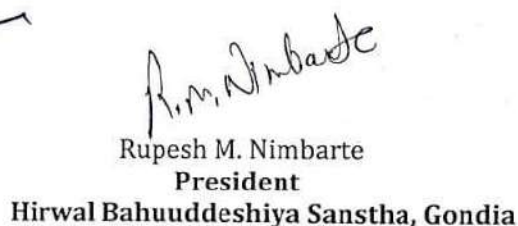 R.M. Nimbarte
Rupesh M. Nimbarte
President
Hirwal Bahuuddeshiya Sanstha, Gondia